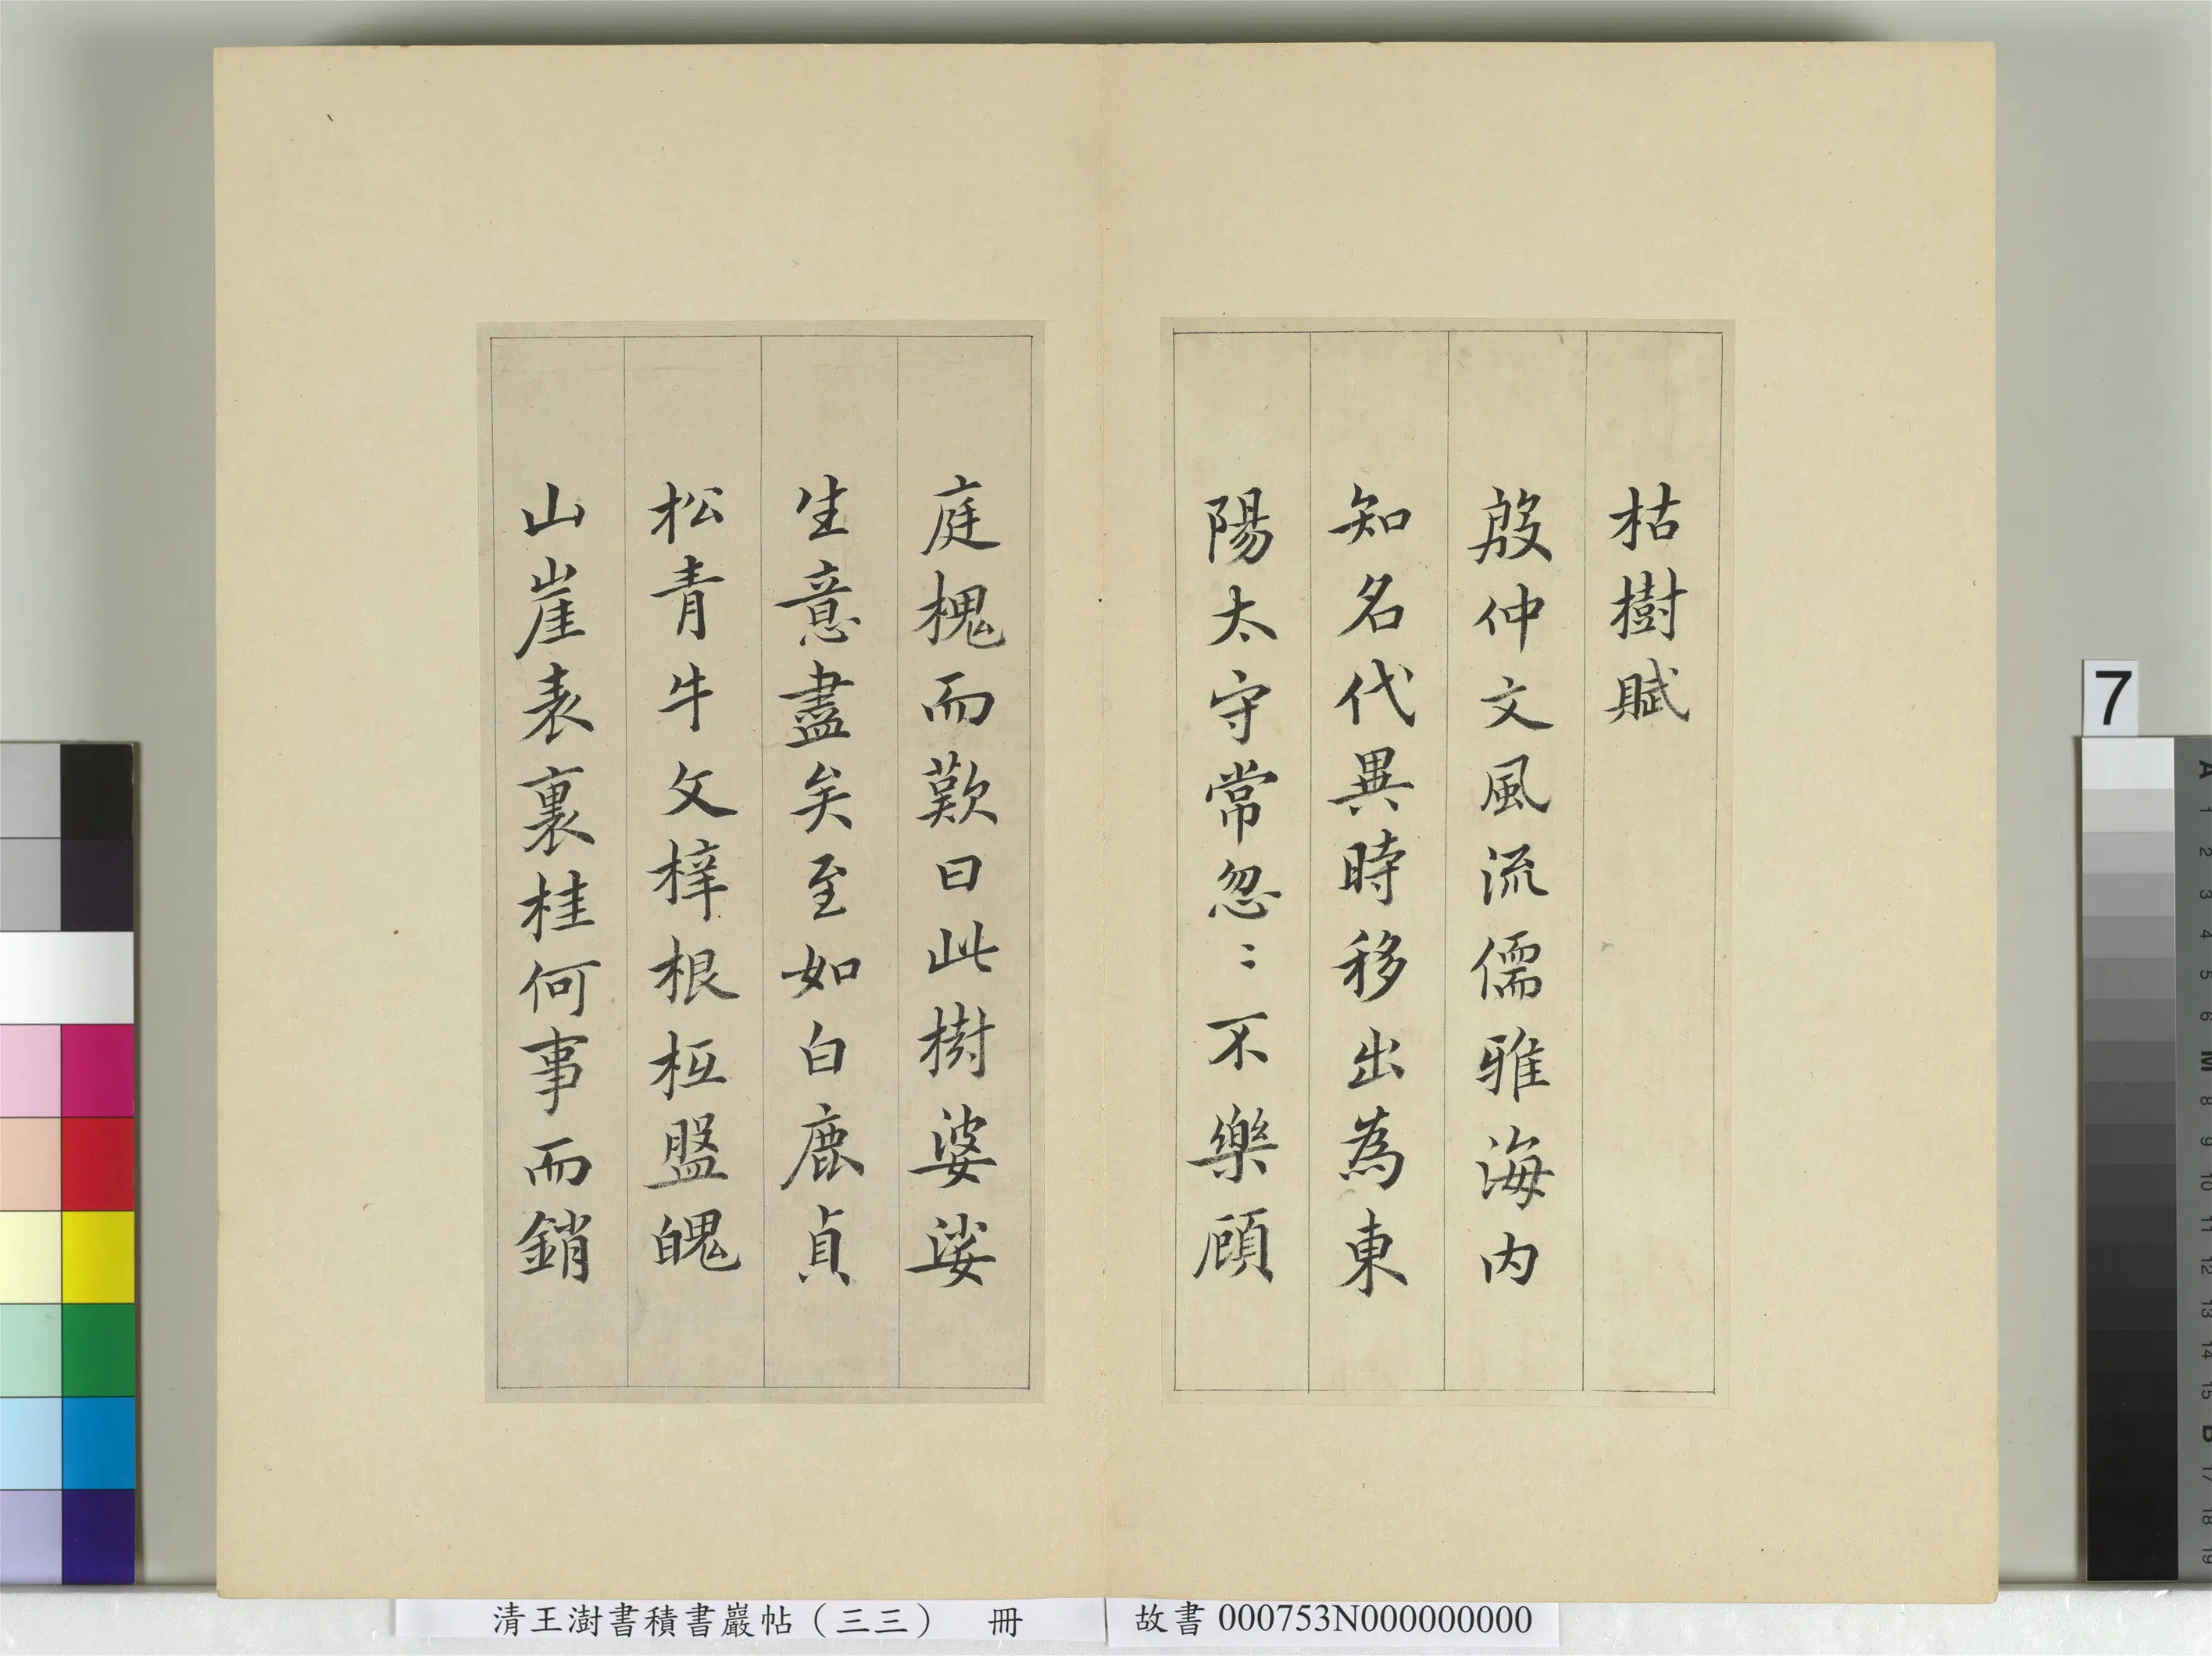 枯樹賦
殷仲文風流儒雅海内
知名代異時移出為東
陽太守常忽〻不樂顧
庭槐而歎曰此樹婆娑
生意盡矣至如白鹿貞
松青牛文梓根柢盤魄
山崖表裏桂何事而銷
清王澍書積書巖帖（三三） 冊
故書 000753N000000000
7
A
1
2
3
4
5
6
M
8
9
10
11
12
13
14
15
B
17
18
19